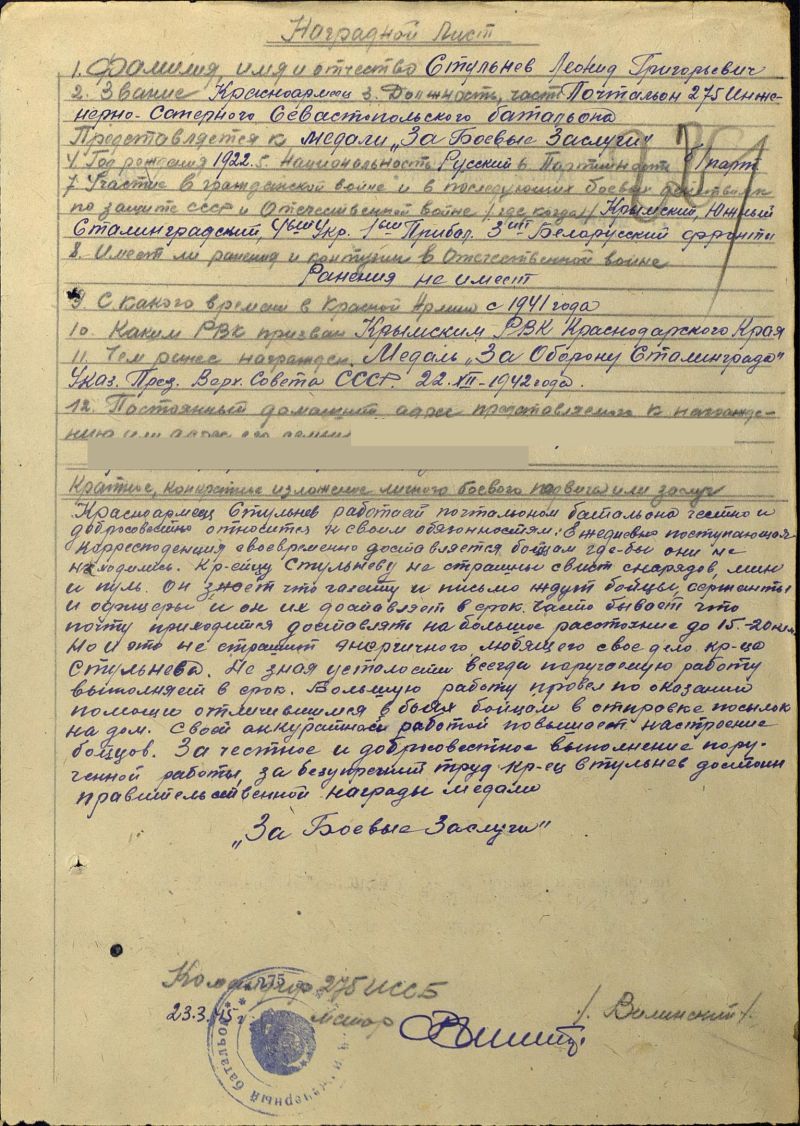 Наградной Лист
1. Фамилия, имя и отчество Стульнев Леонид Григорьевич
2. Звание Красноармеец 3. Должность, часть Почтальон 275 Инже-
нерно-Саперного Севастопольского батальона
Представляется к медали „За Боевые Заслуги"
4. Год рождения 1922. 5. Национальность Русский 6. Партийность б/парт
7. Участие в гражданской войне и в последующих боевых действиях
по защите СССР и Отечественной войне /где, когда/ Крымский, Южный
Сталинградский, 4ый Укр. 1ый Прибал. 3ий Белорусский фронты
8. Имеет ли ранения и контузии в Отечественной войне
Ранения не имеет
9. С какого времени в Красной Армии с 1941 года
10. Каким РВК призван Крымским РВК Краснодарского Края
11. Чем ранее награжден. Медаль „За Оборону Сталинграда"
Указ. През. Верх. Совета СССР. 22.XII-1942 года.
12. Постоянный домашний адрес представляемого к награжде-
нию или адрес его семьи
Краткое, конкретное изложение личного боевого подвига или заслуг
Красноармеец Стульнев работает почтальоном батальона честно и
добросовестно относится к своим обязонностям. Ежедневно поступающая
корреспонденция своевременно доставляется бойцам где-бы они не
находились. Кр-ейцу Стульневу не страшны свист снарядов, мин
и пуль. Он знает что газету и письмо ждут бойцы, сержанты
и офицеры и он их доставляет в срок. Часто бывает что
почту приходится доставлять на большое расстояние до 15-20 км.
Но и это не страшит энергичного любящего свое дело кр-ца
Стульнева. Не зная усталости всегда поручаемую работу
выполняет в срок. Большую работу провел по оказанию
помощи отличившимся в боях бойцам в отпровке посылок
на дом. Своей аккуратной работой повышает настроение
бойцов. За честное и добросовестное выполнение пору-
ченной работы, за безупречный труд кр-ец Стульнев достоин
правительственной награды медали
„За Боевые Заслуги"
Командир 275 ИССБ
23.3.45 г. майор /Валинский/